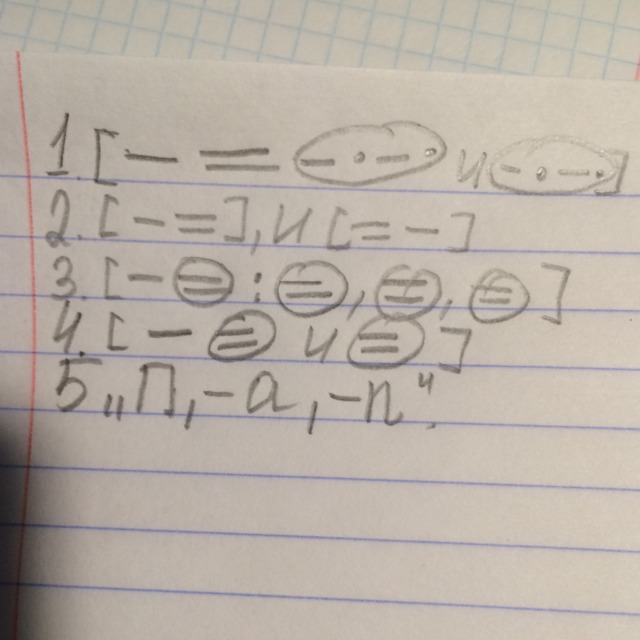 1[— = (—·—·) и (—·—·)]
2.[— =], и [= —]
3[— (=) : (=), (=), (=)]
4.[— (=) и (=)]
5. „П, — а, — п“.